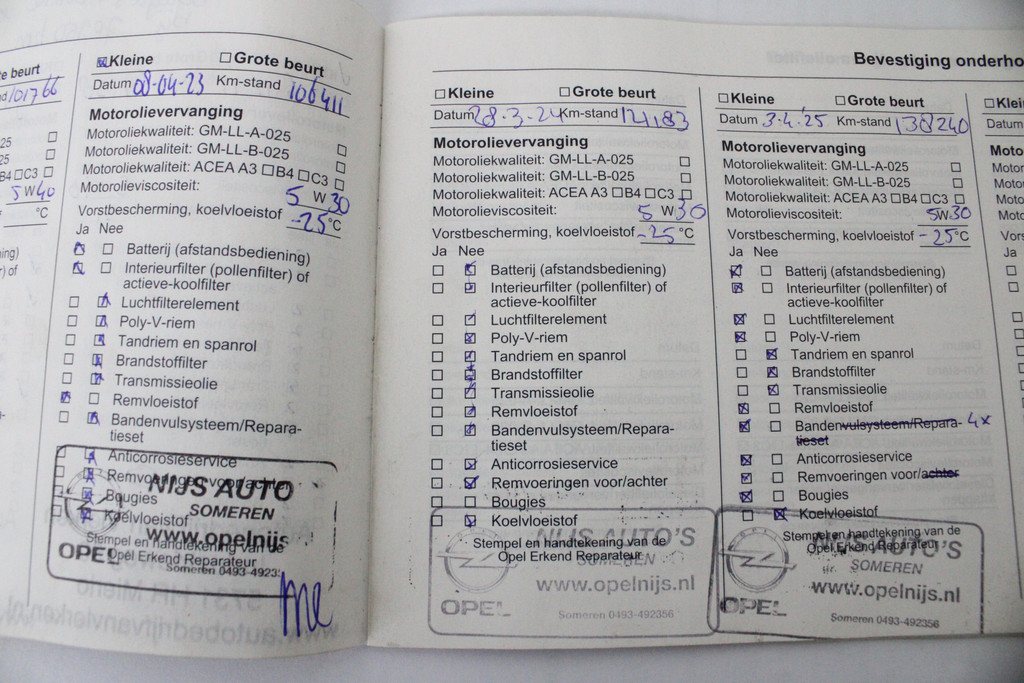 te beurt
101766
5W40
°C
Kleine Grote beurt
Datum 08-04-23 Km-stand 106411
Motorolievervanging
Motoroliekwaliteit: GM-LL-A-025
Motoroliekwaliteit: GM-LL-B-025
Motoroliekwaliteit: ACEA A3 B4 C3
Motorolieviscositeit: 5 W 30
Vorstbescherming, koelvloeistof -25 °C
Ja Nee
Batterij (afstandsbediening)
Interieurfilter (pollenfilter) of
actieve-koolfilter
Luchtfilterelement
Poly-V-riem
Tandriem en spanrol
Brandstoffilter
Transmissieolie
Remvloeistof
Bandenvulsysteem/Repara-
tieset
Anticorrosieservice
Remvoeringen voor/achter
Bougies
Koelvloeistof
Stempel en handtekening van de
Opel Erkend Reparateur
NIJS AUTO
SOMEREN
www.opelnijs
OPEL
Someren 0493-4923
Bevestiging onderho
Kleine Grote beurt
Datum 28-3-24 Km-stand 121183
Motorolievervanging
Motoroliekwaliteit: GM-LL-A-025
Motoroliekwaliteit: GM-LL-B-025
Motoroliekwaliteit: ACEA A3 B4 C3
Motorolieviscositeit: 5 W 30
Vorstbescherming, koelvloeistof -25 °C
Ja Nee
Batterij (afstandsbediening)
Interieurfilter (pollenfilter) of
actieve-koolfilter
Luchtfilterelement
Poly-V-riem
Tandriem en spanrol
Brandstoffilter
Transmissieolie
Remvloeistof
Bandenvulsysteem/Repara-
tieset
Anticorrosieservice
Remvoeringen voor/achter
Bougies
Koelvloeistof
Stempel en handtekening van de
Opel Erkend Reparateur
NIJS AUTO'S
SOMEREN
www.opelnijs.nl
OPEL
Someren 0493-492356
Kleine Grote beurt
Datum 3-4-25 Km-stand 138240
Motorolievervanging
Motoroliekwaliteit: GM-LL-A-025
Motoroliekwaliteit: GM-LL-B-025
Motoroliekwaliteit: ACEA A3 B4 C3
Motorolieviscositeit: 5W30
Vorstbescherming, koelvloeistof -25°C
Ja Nee
Batterij (afstandsbediening)
Interieurfilter (pollenfilter) of
actieve-koolfilter
Luchtfilterelement
Poly-V-riem
Tandriem en spanrol
Brandstoffilter
Transmissieolie
Remvloeistof
Bandenvulsysteem/Repara- 4x
tieset
Anticorrosieservice
Remvoeringen voor/achter
Bougies
Koelvloeistof
Stempel en handtekening van de
Opel Erkend Reparateur
SOMEREN
www.opelnijs.nl
OPEL
Someren 0493-492356
Klein
Datum
Moto
Ja